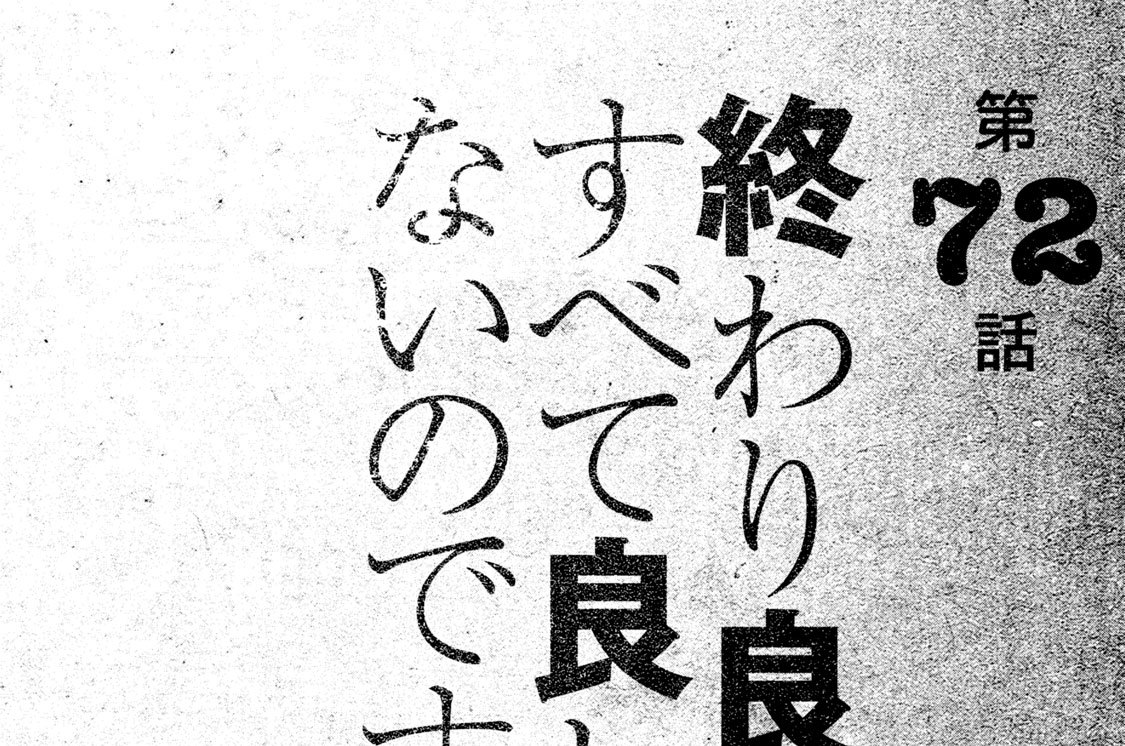 第72話
終わり良
すべて良
ないので